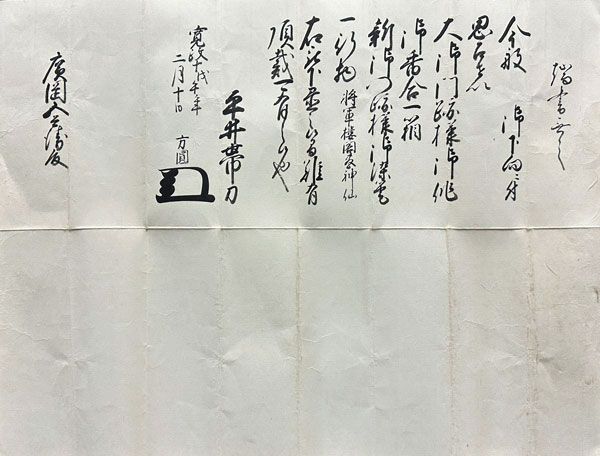 端書無之
今般 御下向ニ付
思召を以
大御門跡様御作
御香合一箱
新御門跡様御染筆
一行物 将軍楼閣神仙
右被下置候間難有
頂戴可有之也
平井帯刀
寛政十戊午年
二月十日 方圓
廣岡殿